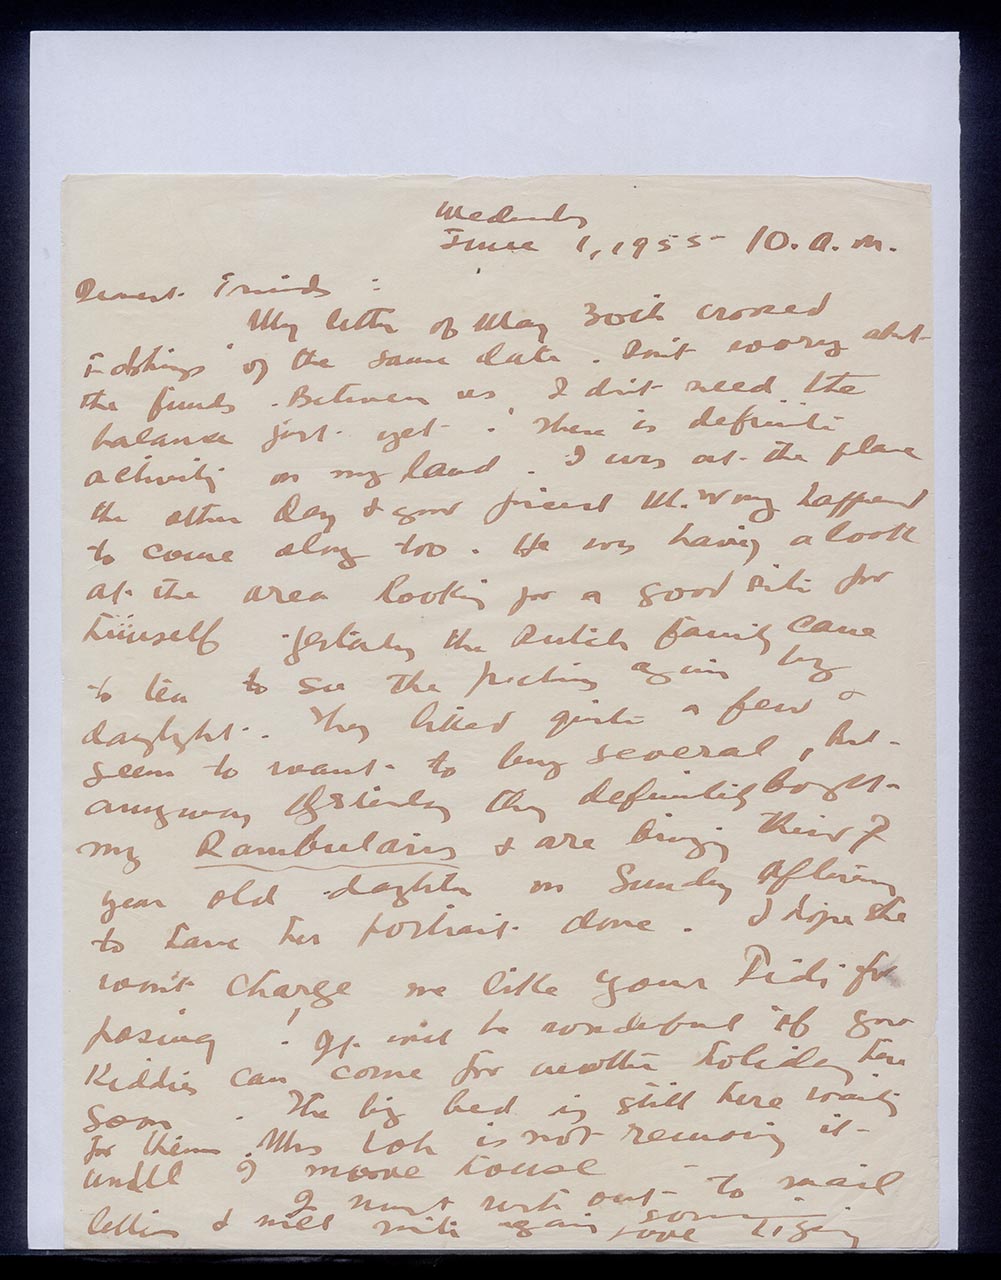 Wednesday
June 1, 1955 - 10. A. M.
Dearest Friends :
My letter of May 30th crossed
of the same date. Don't worry about
the funds. Between us I don't need the
balance just yet. There is definite
activity on my land. I was at the place
the other day & your friend M. Wong happened
to come along too. He was having a look
at the area looking for a good site for
himself. Yesterday the Dutch family came
to tea to see the pictures again by
daylight. They liked quite a few &
seem to want to buy several, but
anyway Yesterday they definitely bought
my Rambutans & are bringing their 7
year old daughter on Sunday afternoon
to have her portrait done. I hope she
won't charge me like your Didi for
posing! It will be wonderful if your
Kiddies can come for another holiday here
soon. The big bed is still here waiting
for them. Mrs Loh is not removing it
until I move house -
I must rush out to mail
letters & will write again soon
Love